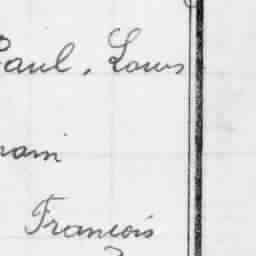 Paul, Louis
François